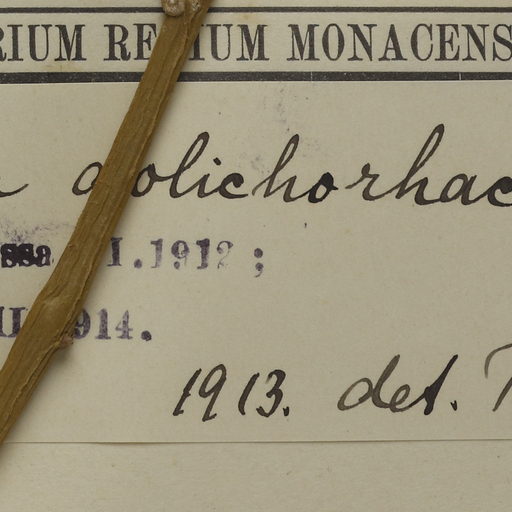 RIUM REGIUM MONACENS
a dolichorhac
ssa I.1912;
II.1914.
1913. det.